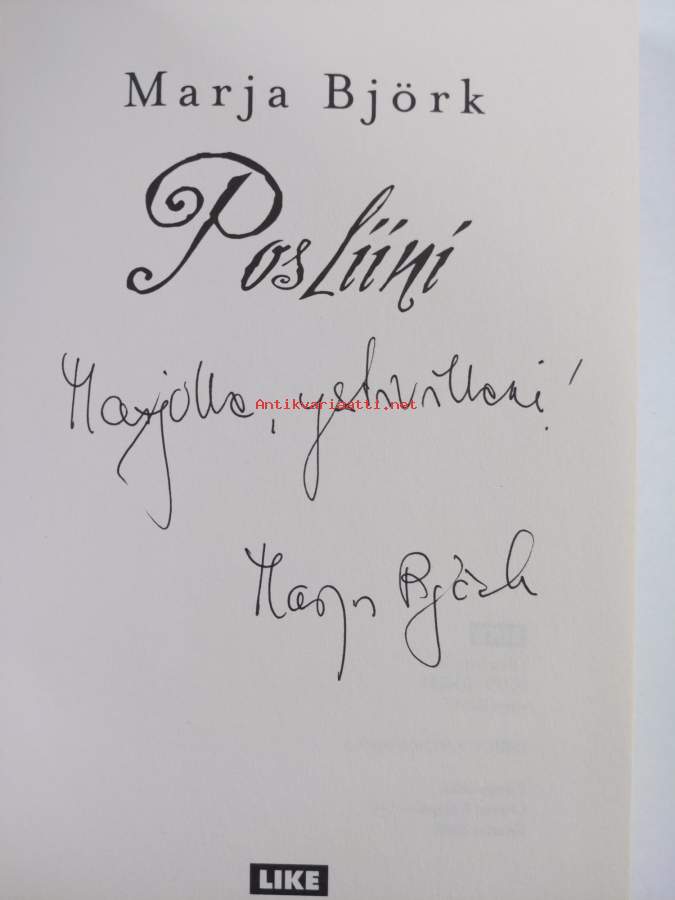 Marja Björk
Posliini
Marjolle, ystävälleni!
Antikvariaatti.net
Marja Björk
LIKE